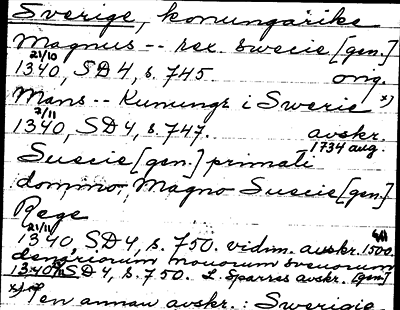 Sverige, konungarike
Magnus -- rex Swecie [gen.]
21/10
1340, SD 4, s. 745. orig.
Måns -- Kunungr i Swerie x)
2/11
1340, SD 4, s. 747. avskr.
1734 aug.
Suecie [gen.] primati
domino, Magno Suecie [gen.]
Rege
21/11
1340, SD 4, s. 750. vidim. avskr. 1500.
denariorum novorum sveuorum
1340 SD 4, s. 750. L. Sparres avskr. [gen]
x) I en annan avskr.: Swerigie